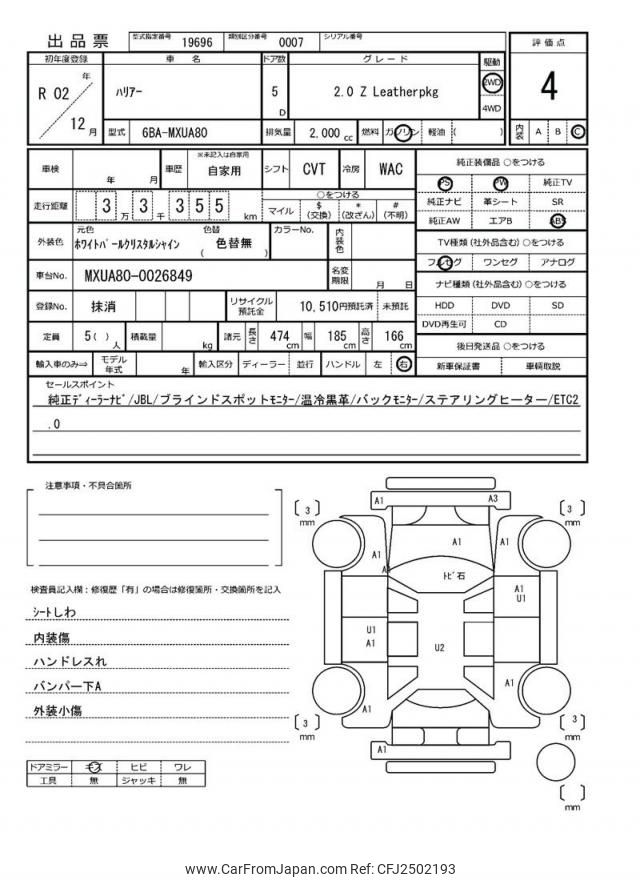 出品票 型式指定番号 19696 類別区分番号 0007 シリアル番号
評価点
4
内装 A B C
初年度登録 車名 ドア数 グレード 駆動
R 02 年 12 月 ハリアー 5 D 2.0 Z Leatherpkg 2WD 4WD
型式 6BA-MXUA80 排気量 2,000 cc 燃料 ガソリン 軽油 ( )
車検 年 月 車歴 ※未記入は自家用 自家用 シフト CVT 冷房 WAC
走行距離 3 万 3 千 3 5 5 km
○をつける
マイル $ (交換) * (改ざん) # (不明)
外装色 元色 ホワイトパールクリスタルシャイン 色替 ( 色替無 ) カラーNo. 内装色
車台No. MXUA80-0026849 名変期限 月 日
登録No. 抹消 リサイクル預託金 10,510円預託済 未預託
定員 5 ( ) 人 積載量 kg 諸元 長さ 474 cm 幅 185 cm 高さ 166 cm
輸入車のみ⇒ モデル年式 年 輸入区分 ディーラー 並行 ハンドル 左 右
純正装備品 ○をつける
PS PW 純正TV
純正ナビ 革シート SR
純正AW エアB ABS
TV種類 (社外品含む) ○をつける
フルセグ ワンセグ アナログ
ナビ種類 (社外品含む) ○をつける
HDD DVD SD
DVD再生可 CD
後日発送品 ○をつける
新車保証書 車輌取説
セールスポイント
純正ディーラーナビ/JBL/ブラインドスポットモニター/温冷黒革/バックモニター/ステアリングヒーター/ETC2
.0
注意事項・不具合箇所
検査員記入欄：修復歴「有」の場合は修復箇所・交換箇所を記入
シートしわ
内装傷
ハンドレスれ
バンパー下A
外装小傷
ドアミラー キズ ヒビ ワレ
工具 無 ジャッキ 無
A1 A3
3 mm 3 mm
A1 A1 A1
A
トビ石
A1
U1
U1
A1
U2
A1
A1
3 mm 3 mm
A1
mm
www.CarFromJapan.com Ref: CFJ2502193